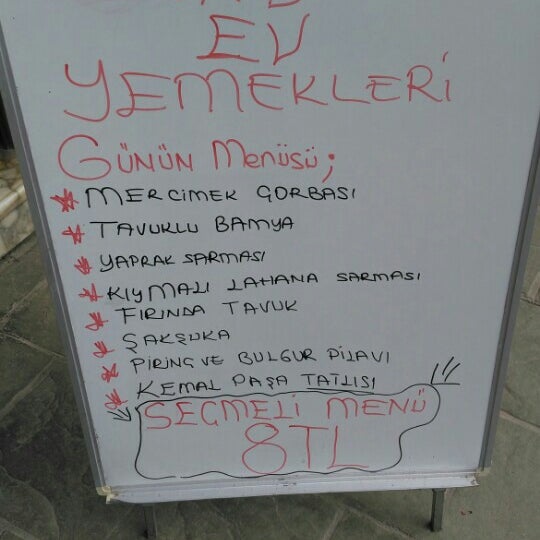 EV
YEMEKLERİ
GÜNÜN MENÜSÜ;
* MERCİMEK ÇORBASI
* TAVUKLU BAMYA
* YAPRAK SARMASI
* KIYMALI LAHANA SARMASI
* FIRINDA TAVUK
* ŞAKŞUKA
* PİRİNÇ VE BULGUR PİLAVI
* KEMAL PAŞA TATLISI
SEÇMELİ MENÜ
8TL